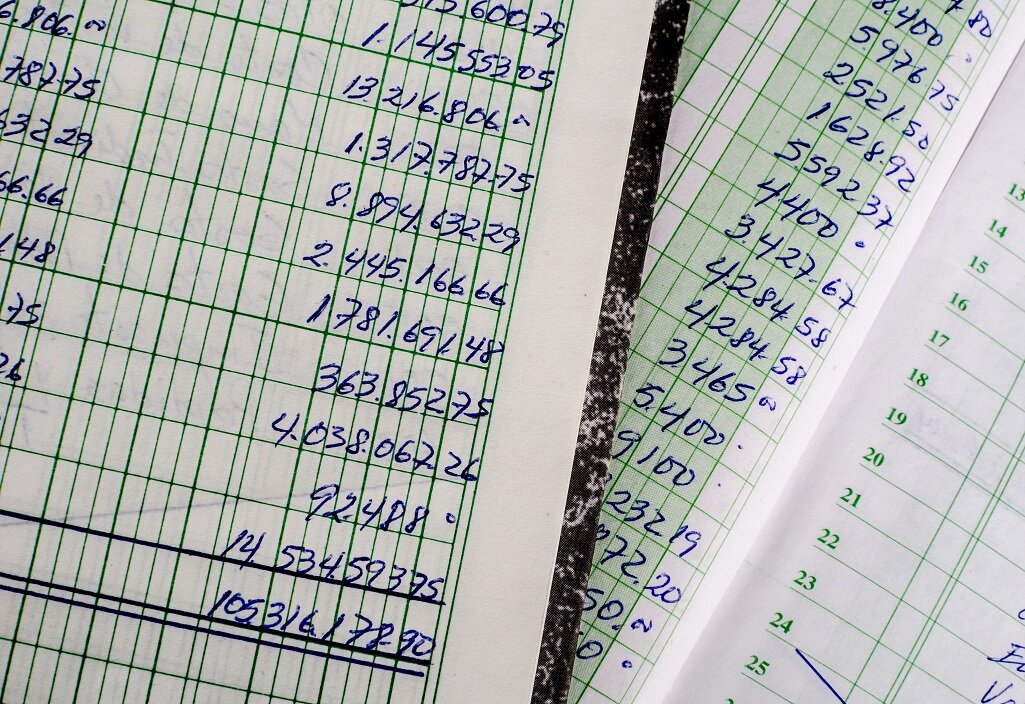 6.806.~
787.75
632 29
66.66
1.48
75
26
600.79
1.145553 05
13.216.806.~
1.317.787.75
8.894.632.29
2.445.166 66
1.781.691.48
363.852 75
4.038.067.26
92.488 °
14.534.593 75
105316.178.90
80
8.400 ..
5976 75
2521.50
1628 92
5592 37
4400 °
3.427.67
4.284.58
4284.58
3.465 ~
5.400 .
9100 .
232 19
372.20
50.~
0 °
13
14
15
16
17
18
19
20
21
22
23
24
25